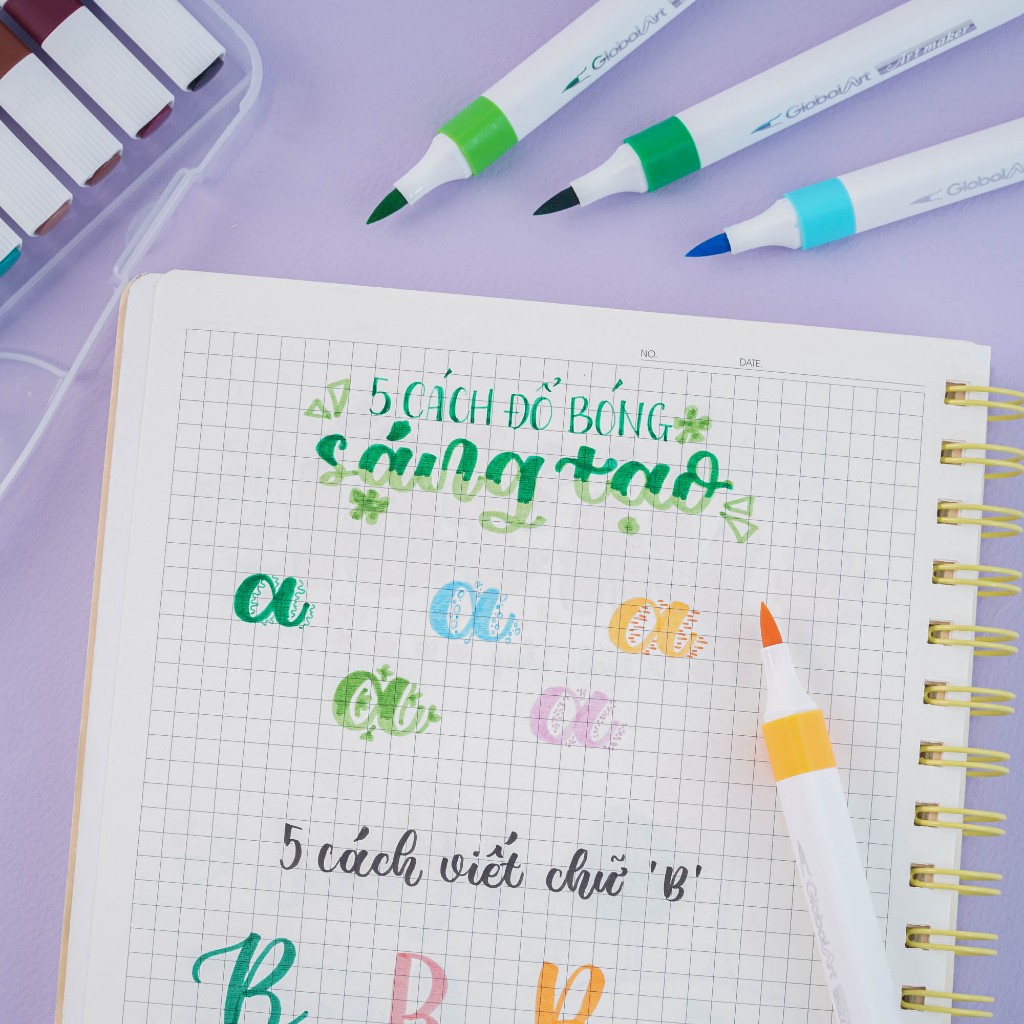 GlobalArt
GlobalArt Art maker
GlobalArt
NO. DATE.
5 CÁCH ĐỔ BÓNG
sáng tạo
a a a
a a
5 cách viết chữ 'B'
B B B
GlobalArt